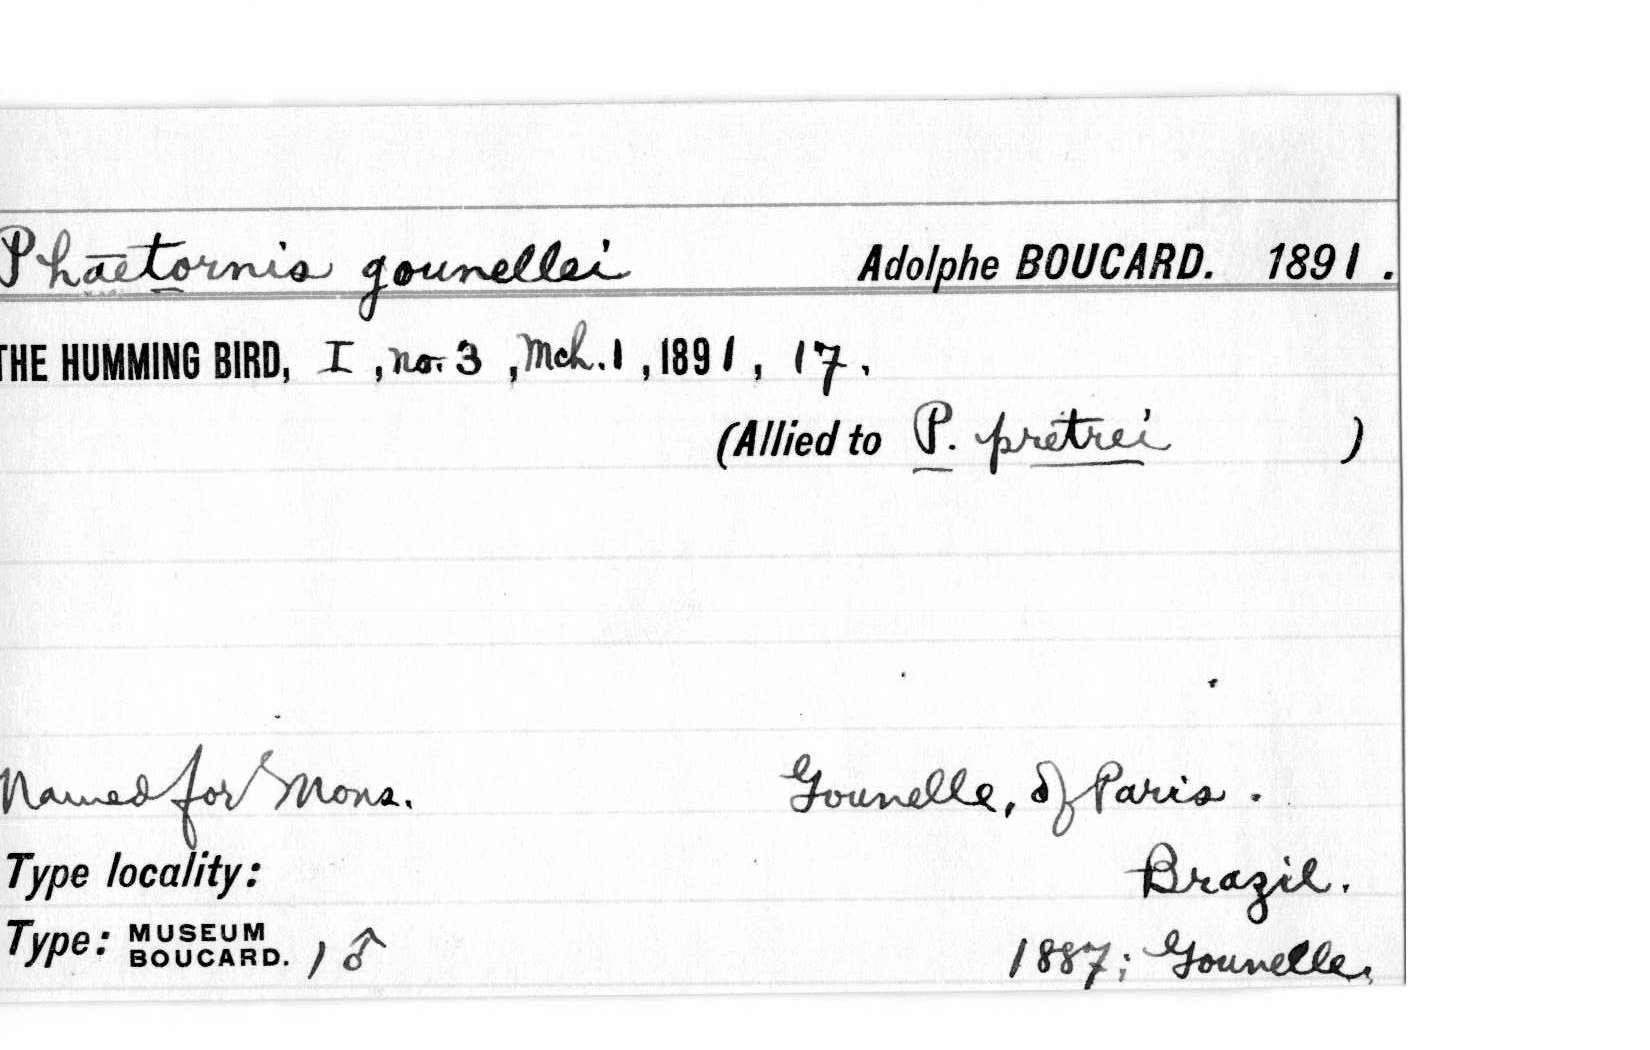 Phaetornis gounellei Adolphe BOUCARD. 1891.
THE HUMMING BIRD, I, no. 3, Mch. 1, 1891, 17.
(Allied to P. pretrei )
Named for Mons. Gounelle, of Paris.
Type locality: Brazil.
Type: MUSEUM BOUCARD. 1 ♂ 1887; Gounelle.